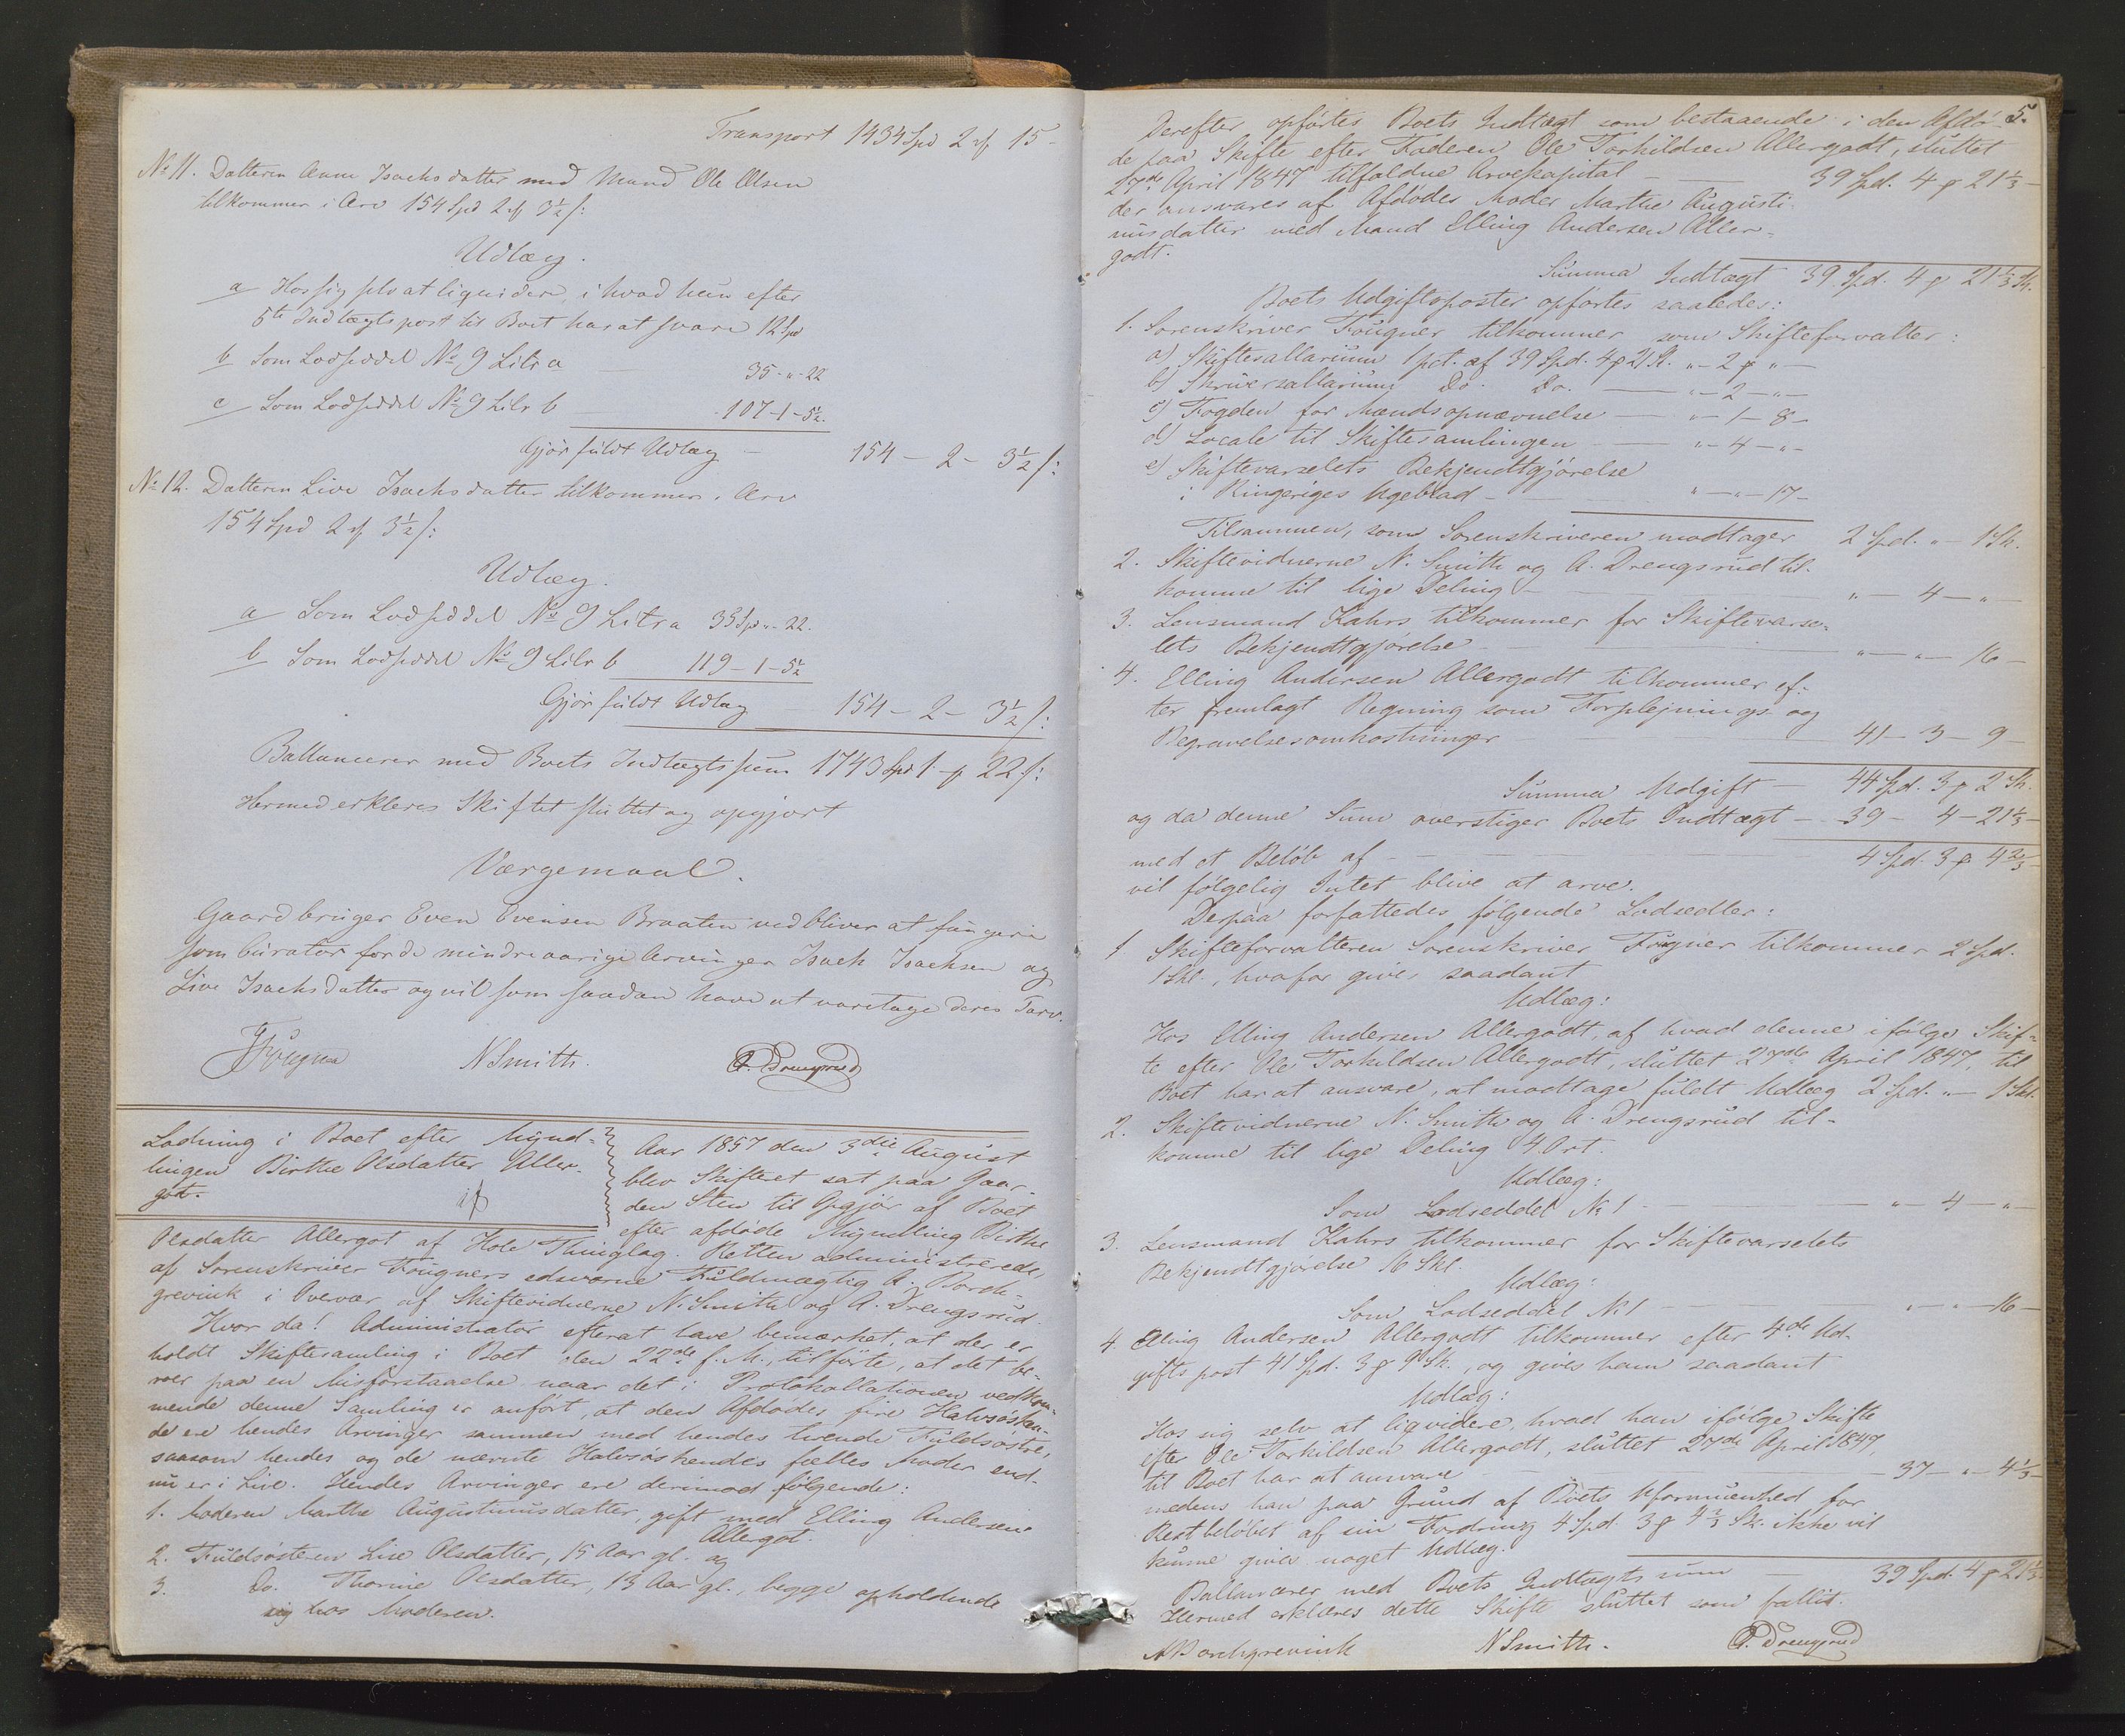 Transport 1434 Spd 2 ₰ 15 -
No 11. Datteren Anne Isachsdatter med Mand Ole Olsen
tilkommer i Arv 154 Spd 2 ₰ 3½ s:
Udlæg.
a Hos sig selv at liquidere, i hvad hun efter
5te Indtægtspost til Boet har at svare 12 Spd
b Som Lodseddel No 9 Litr a - 35 - " - 22
c Som Lodseddel No 9 Litr b - 107 - 1 - 5½.
Gjør fuldt Udlæg - 154 - 2 - 3½ s:
No 12. Datteren Live Isachsdatter tilkommer i Arv
154 Spd 2 ₰ 3½ s:
Udlæg.
a Som Lodseddel No 9 Litr a 35 Sp " - 22.
b Som Lodseddel No 9 Litr b 119 - 1 - 5½
Gjør fuldt Udlæg - 154 - 2 - 3½ s:
Ballancerer med Boets Indtægtssum 1743 Spd 1 ₰ 22 s:
Hermed erkleres Skiftet sluttet og opgjort
Værgemaal.
Gaardbruger Even Evensen Braaten vedbliver at fungere
som Curator for de mindreaarige Arvinger Isach Isachsen og
Live Isachsdatter og vil som saadan have at varetage deres Tarv.
Fougner N Smith. A. Drengsrud
Lodning i Boet efter Mynd-
lingen Birthe Olsdatter Aller-
got.
Aar 1857 den 3die August
blev Skifteret sat paa Gaar-
den Sten til Opgjør af Boet
efter afdøde Myndling Birthe
Olsdatter Allergot af Hole Thinglag. Retten administrerede,
af Sorenskriver Fougners edsvorne Fuldmægtig A. Borch-
grevink i Overvær af Skiftevidnerne N. Smith og A. Drengsrud.
Hvor da! Administrator efterat have bemærket, at der er
holdt Skiftesamling i Boet den 22de f. M., tilførte, at det be-
roer paa en Misforstaaelse naar det i Protokollationen vedkom-
mende denne Samling er anført, at den Afdødes fire Halvsøsken-
de ere hendes Arvinger sammen med hendes tvende Fuldsøstre,
saasom hendes og de nævnte Halvsøskendes fælles Moder end-
nu er i Live. Hendes Arvinger ere derimod følgende:
1. Moderen Marthe Augustinusdatter, gift med Elling Andersen
Allergot.
2. Fuldsøsteren Lise Olsdatter, 15 Aar gl. og
3. Do. Thorine Olsdatter, 13 Aar gl., begge opholdende
sig hos Moderen.
5.
Derefter opførtes Boets Indtægt som bestaaende i den Afdø-
de paa Skifte efter Faderen Ole Torkildsen Allergodt, sluttet
27de April 1847 tilfaldne Arvekapital - 39 Spd. 4 ₰ 21⅓ -
der ansvares af Afdødes Moder Marthe Augusti-
nusdatter med Mand Elling Andersen Aller-
godt.
Summa Indtægt 39 Spd. 4 ₰ 21⅓ Sk.
Boets Udgiftsposter opførtes saaledes:
1. Sorenskriver Fougner tilkommer som Skifteforvalter:
a) Skiftesallarium 1 pct. af 39 Spd. 4 ₰ 21 Sk. " - 2 ₰ " -
b) Skriversallarium Do. Do. - " - 2 - " -
c) Fogden for Mændsopnævnelse - " - 1 - 8 -
d) Locale til Skiftesamlingen - " - 4 - " -
e) Skiftevarselets Bekjendtgjørelse
i Ringeriges Ugeblad - " - " - 17 -
Tilsammen, som Sorenskriveren modtager 2 Spd. " - 1 Sk.
2. Skiftevidnerne N. Smith og A. Drengsrud til-
komme til lige Deling - " - 4 - " -
3. Lensmand Kahrs tilkommer for Skiftevarse-
lets Bekjendtgjørelse - " - " - 16 -
4. Elling Andersen Allergodt tilkommer ef-
ter fremlagt Regning som Forplejnings- og
Begravelsesomkostninger - 41 - 3 - 9 -
Summa Udgift - 44 Spd. 3 ₰ 2 Sk.
og da denne Sum overstiger Boets Indtægt - 39 - 4 - 21⅓ -
med et Beløb af - 4 Spd. 3 ₰ 4⅔ -
vil følgelig Intet blive at arve.
Derpaa forfattedes følgende Lodsedler:
1 Skifteforvalteren Sorenskriver Fougner tilkommer 2 Spd.
1 Skl., hvorfor gives saadant
Udlæg:
Hos Elling Andersen Allergodt, af hvad denne ifølge Skif-
te efter Ole Torkildsen Allergodt, sluttet 27de April 1847, til
Boet har at ansvare, at modtage fuldt Udlæg 2 Spd. " - 1 Skl.
2. Skiftevidnerne N. Smith og A. Drengsrud til-
komme til lige Deling 4 Ort.
Udlæg:
Som Lodseddel No 1 - " - 4 - " -
3. Lensmand Kahrs tilkommer for Skiftevarselets
Bekjendtgjørelse 16 Skl.
Udlæg:
Som Lodseddel No 1 - " - " - 16 -
4. Elling Andersen Allergodt tilkommer efter 4de Ud-
gifts post 41 Spd. 3 ₰ 9 Sk., og gives ham saadant
Udlæg:
Hos sig selv at liqvidere, hvad han ifølge Skifte
efter Ole Torkildsen Allergodt, sluttet 27de April 1847,
til Boet har at ansvare - 37 - " - 4⅓ -
medens han paa Grund af Boets Uformuenhed for
Restbeløbet af sin Fordring 4 Spd. 3 ₰ 4⅔ Sk. ikke vil
kunne gives noget Udlæg.
Ballancerer med Boets Indtægtssum - 39 Spd. 4 ₰ 21⅓
Hermed erklæres dette Skifte sluttet som fallit.
A Borchgrevink N Smith. A. Drengsrud